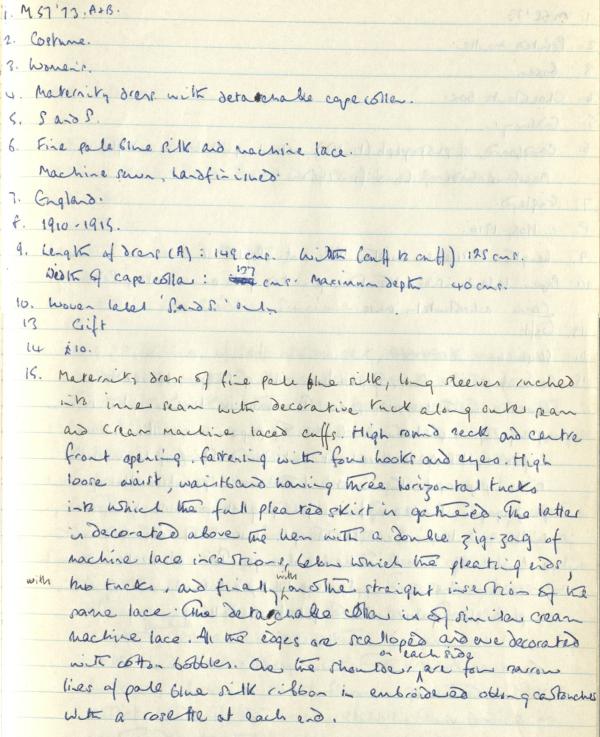 1. MST '73. A+B.
2. Costume.
3. Women's.
4. Maternity dress with detachable cape collar.
5. S and S.
6. Fine pale blue silk and machine lace.
Machine sewn, handfinished.
7. England.
8. 1910-1915.
9. Length of dress (A): 149 cms. Width (cuff to cuff) 125 cms.
Width of cape collar: 127 cms. Maximum depth 40 cms.
10. Woven label 'S. and S.' only.
13 Gift
14 £10.
15. Maternity dress of fine pale blue silk, long sleeves ruched
into inner seam with decorative tuck along outer seam
and cream machine laced cuffs. High round neck and centre
front opening. fastening with four hooks and eyes. High
loose waist, waistband having three horizontal tucks
into which the full pleated skirt is gathered. The latter
is decorated above the hem with a double zig-zag of
machine lace insertions, below which the pleating ends,
with two tucks, and finally with another straight insertion of the
same lace. The detachable collar is of similar cream
machine lace. All the edges are scalloped and are decorated
with cotton bobbles. Over the shoulders on each side are four narrow
lines of pale blue silk ribbon in embroidered oblong cartouches
with a rosette at each end.